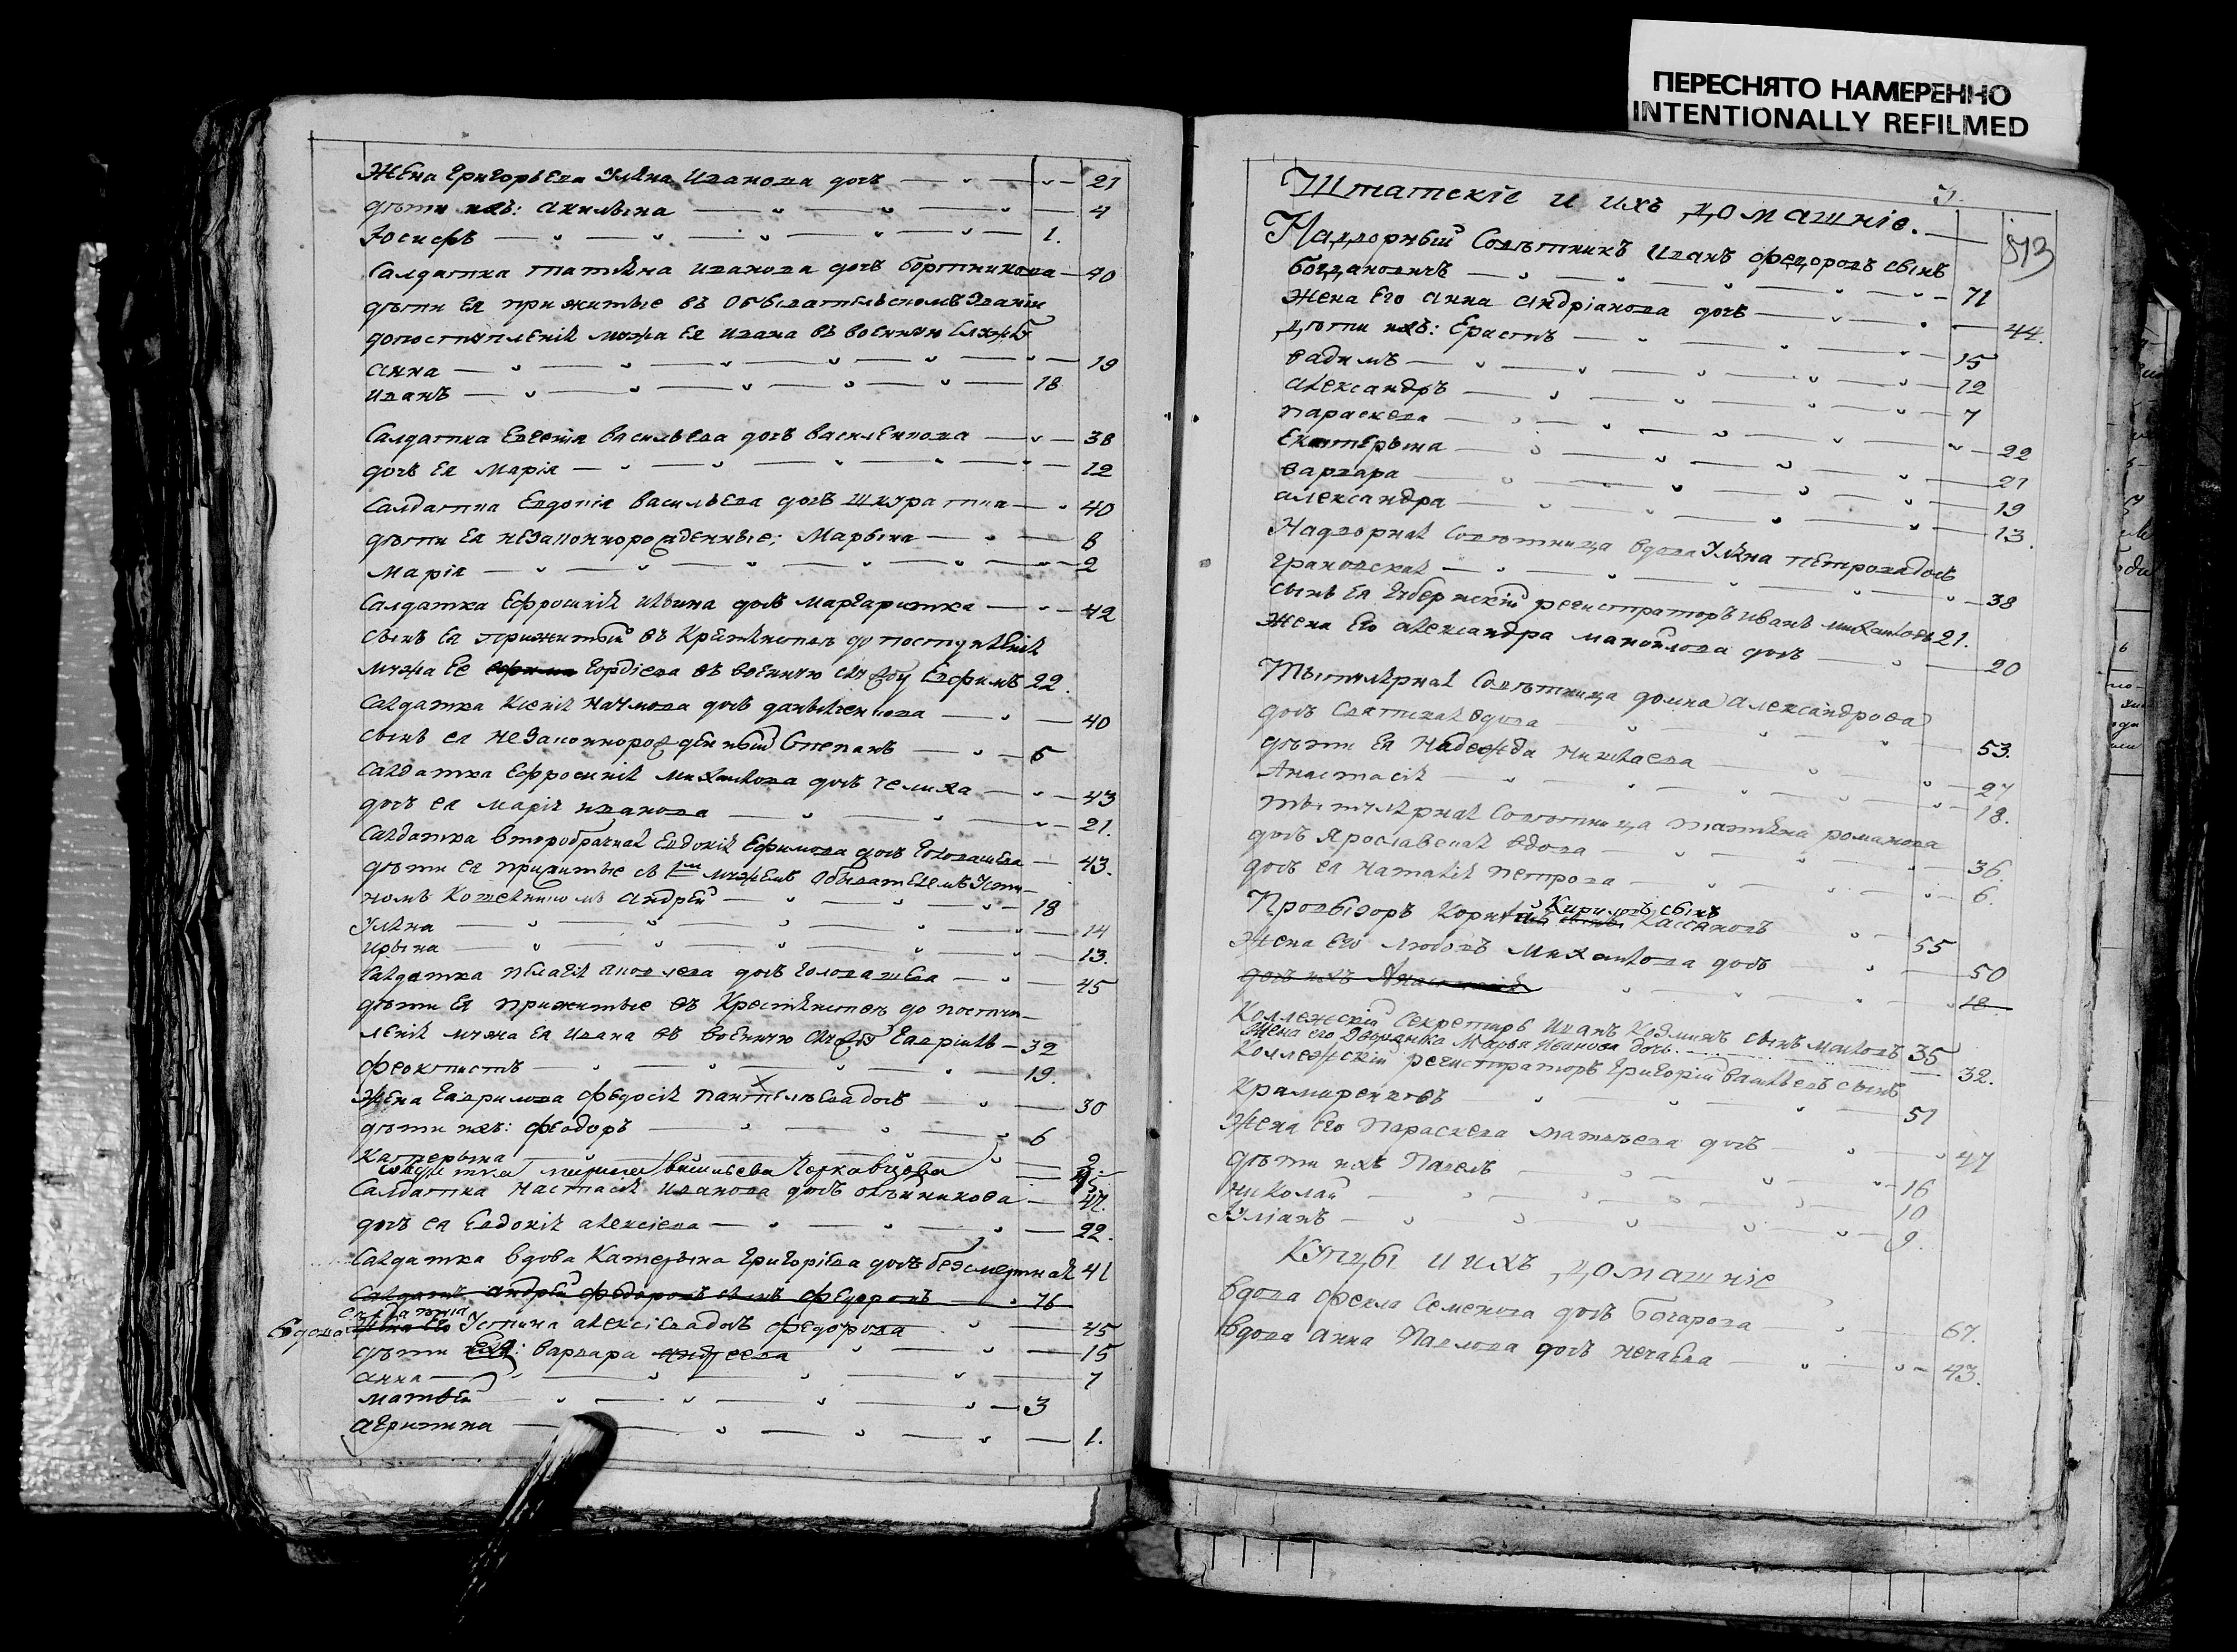 ПЕРЕСНЯТО НАМЕРЕННО
INTENTIONALLY REFILMED
Жена Григорьева Уляна Иванова дочь 21
дѣти ихъ: Акилына 4
Іосифъ 1.
Салдатка Татіяна Иванова дочь Бортникова 40
дѣти ея прижитые въ Обывательскомъ званіи
до поступленія мужа ея Ивана въ военную службу
Анна 19
Иванъ 18
Салдатка Евгенія Васильева дочь 38
дочь ея Марія 12
Салдатка Евдокія Васильева дочь Шкуратка 40
дѣти ея незаконнорожденные: Марына 8
Марія 2
Салдатка Ефросинія Ильина дочь Маргаритка 42
сынъ ея прижитый въ Крестьянствѣ до поступленія
мужа ее Гордіева въ военную службу Евфимъ 22.
Салдатка Ксенія Наумова дочь 40
сынъ ея незаконнорожденный Степанъ 5
Салдатка Ефросинія Михайлова дочь 43
дочь ея Марія Иванова 21.
Салдатка второбрачная Евдокія Ефимова дочь Головашева 43.
дѣти ея прижитые съ 1мъ мужемъ Обывателемъ Усти-
номъ Андрей 18
Уляна 14
Ирына 13.
Салдатка Пелагія дочь Головашева 45
дѣти ея прижитые въ Крестьянствѣ до поступ-
ленія мужа ея Ивана въ военную службу Гавріилъ 32
Феоктистъ 19.
Жена Гаврилова Федосія Пантелѣева дочь 30
дѣти ихъ: Феодоръ 6
Катерына 2.
Салдатка Васильева 45.
Салдатка Настасія Иванова дочь 47.
дочь ея Евдокія Алексіева 22.
Салдатка вдова Катерына Григоріева дочь Безсмертная 41
Салдатъ Андрей Федоровъ сынъ Федоровъ 76
Салдатка
Вдова Жена его Устина Алексіева дочь Федорова 45
дѣти Ея: Варвара Андреева 15
Анна 7
Матвей 3
Агрипина 1.
Штатскіе и ихъ домашніе.
513
Надворный Совѣтникъ Иванъ Федоровъ сынъ
Богдановичъ 71
Жена Его Анна Андріанова дочь 44.
Дѣти ихъ: Ерастъ 15
Вадимъ 12
Александръ 7
Параскева 22
Екатерына 21
Варвара 19
Александра 13.
Надворная Совѣтница вдова Уляна Петрова дочь
Грановская 38
сынъ Ея Губернскій регистраторъ Иванъ Михайловъ 21.
Жена Его Александра Манойлова дочь 20
Тытулярная Совѣтница Домна Александрова
дочь Святская вдова 53.
дѣти Ея Надежда Николаева 27
Анастасія 18.
Тытулярная Совѣтница Татіяна Романова
дочь Ярославская вдова 36.
дочь ея Наталія Петрова 6.
Кириловъ сынъ
Провызоръ Кассановъ 55
Жена Его Любовь Михайлова дочь 50
дочь ихъ Анастасія 18
Коллежскій Секретарь Иванъ Козминъ сынъ 35
Жена его Дворянка Марва Иванова дочь 32.
Коллежскій регистраторъ Григорій Васильевъ сынъ
Крамаренковъ 51
Жена Его Параскева Матвѣева дочь 47
дѣти ихъ Павелъ 16
Николай 10
Уліанъ 9.
Купцы и ихъ домашніе
Вдова Фекла Семенова дочь Бочарова 67.
Вдова Анна Павлова дочь Нечаева 43.